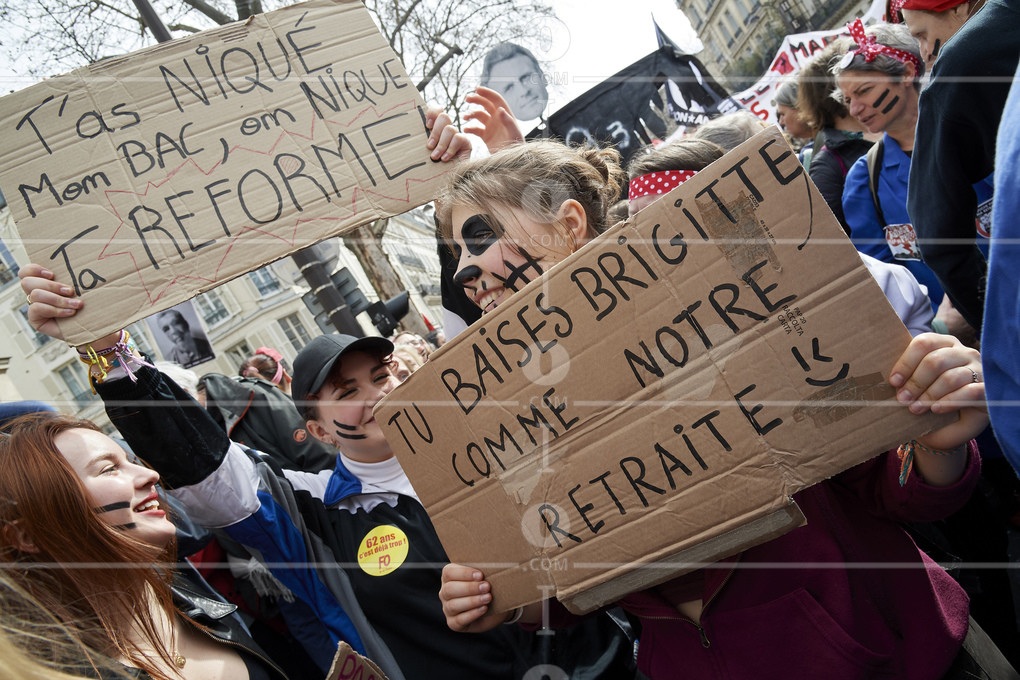 T'as NIQUÉ
Mon BAC, on NIQUE
Ta REFORME
TU BAISES BRIGITTE,
COMME NOTRE
RETRAITE
62 ans
c'est déjà trop !
FO